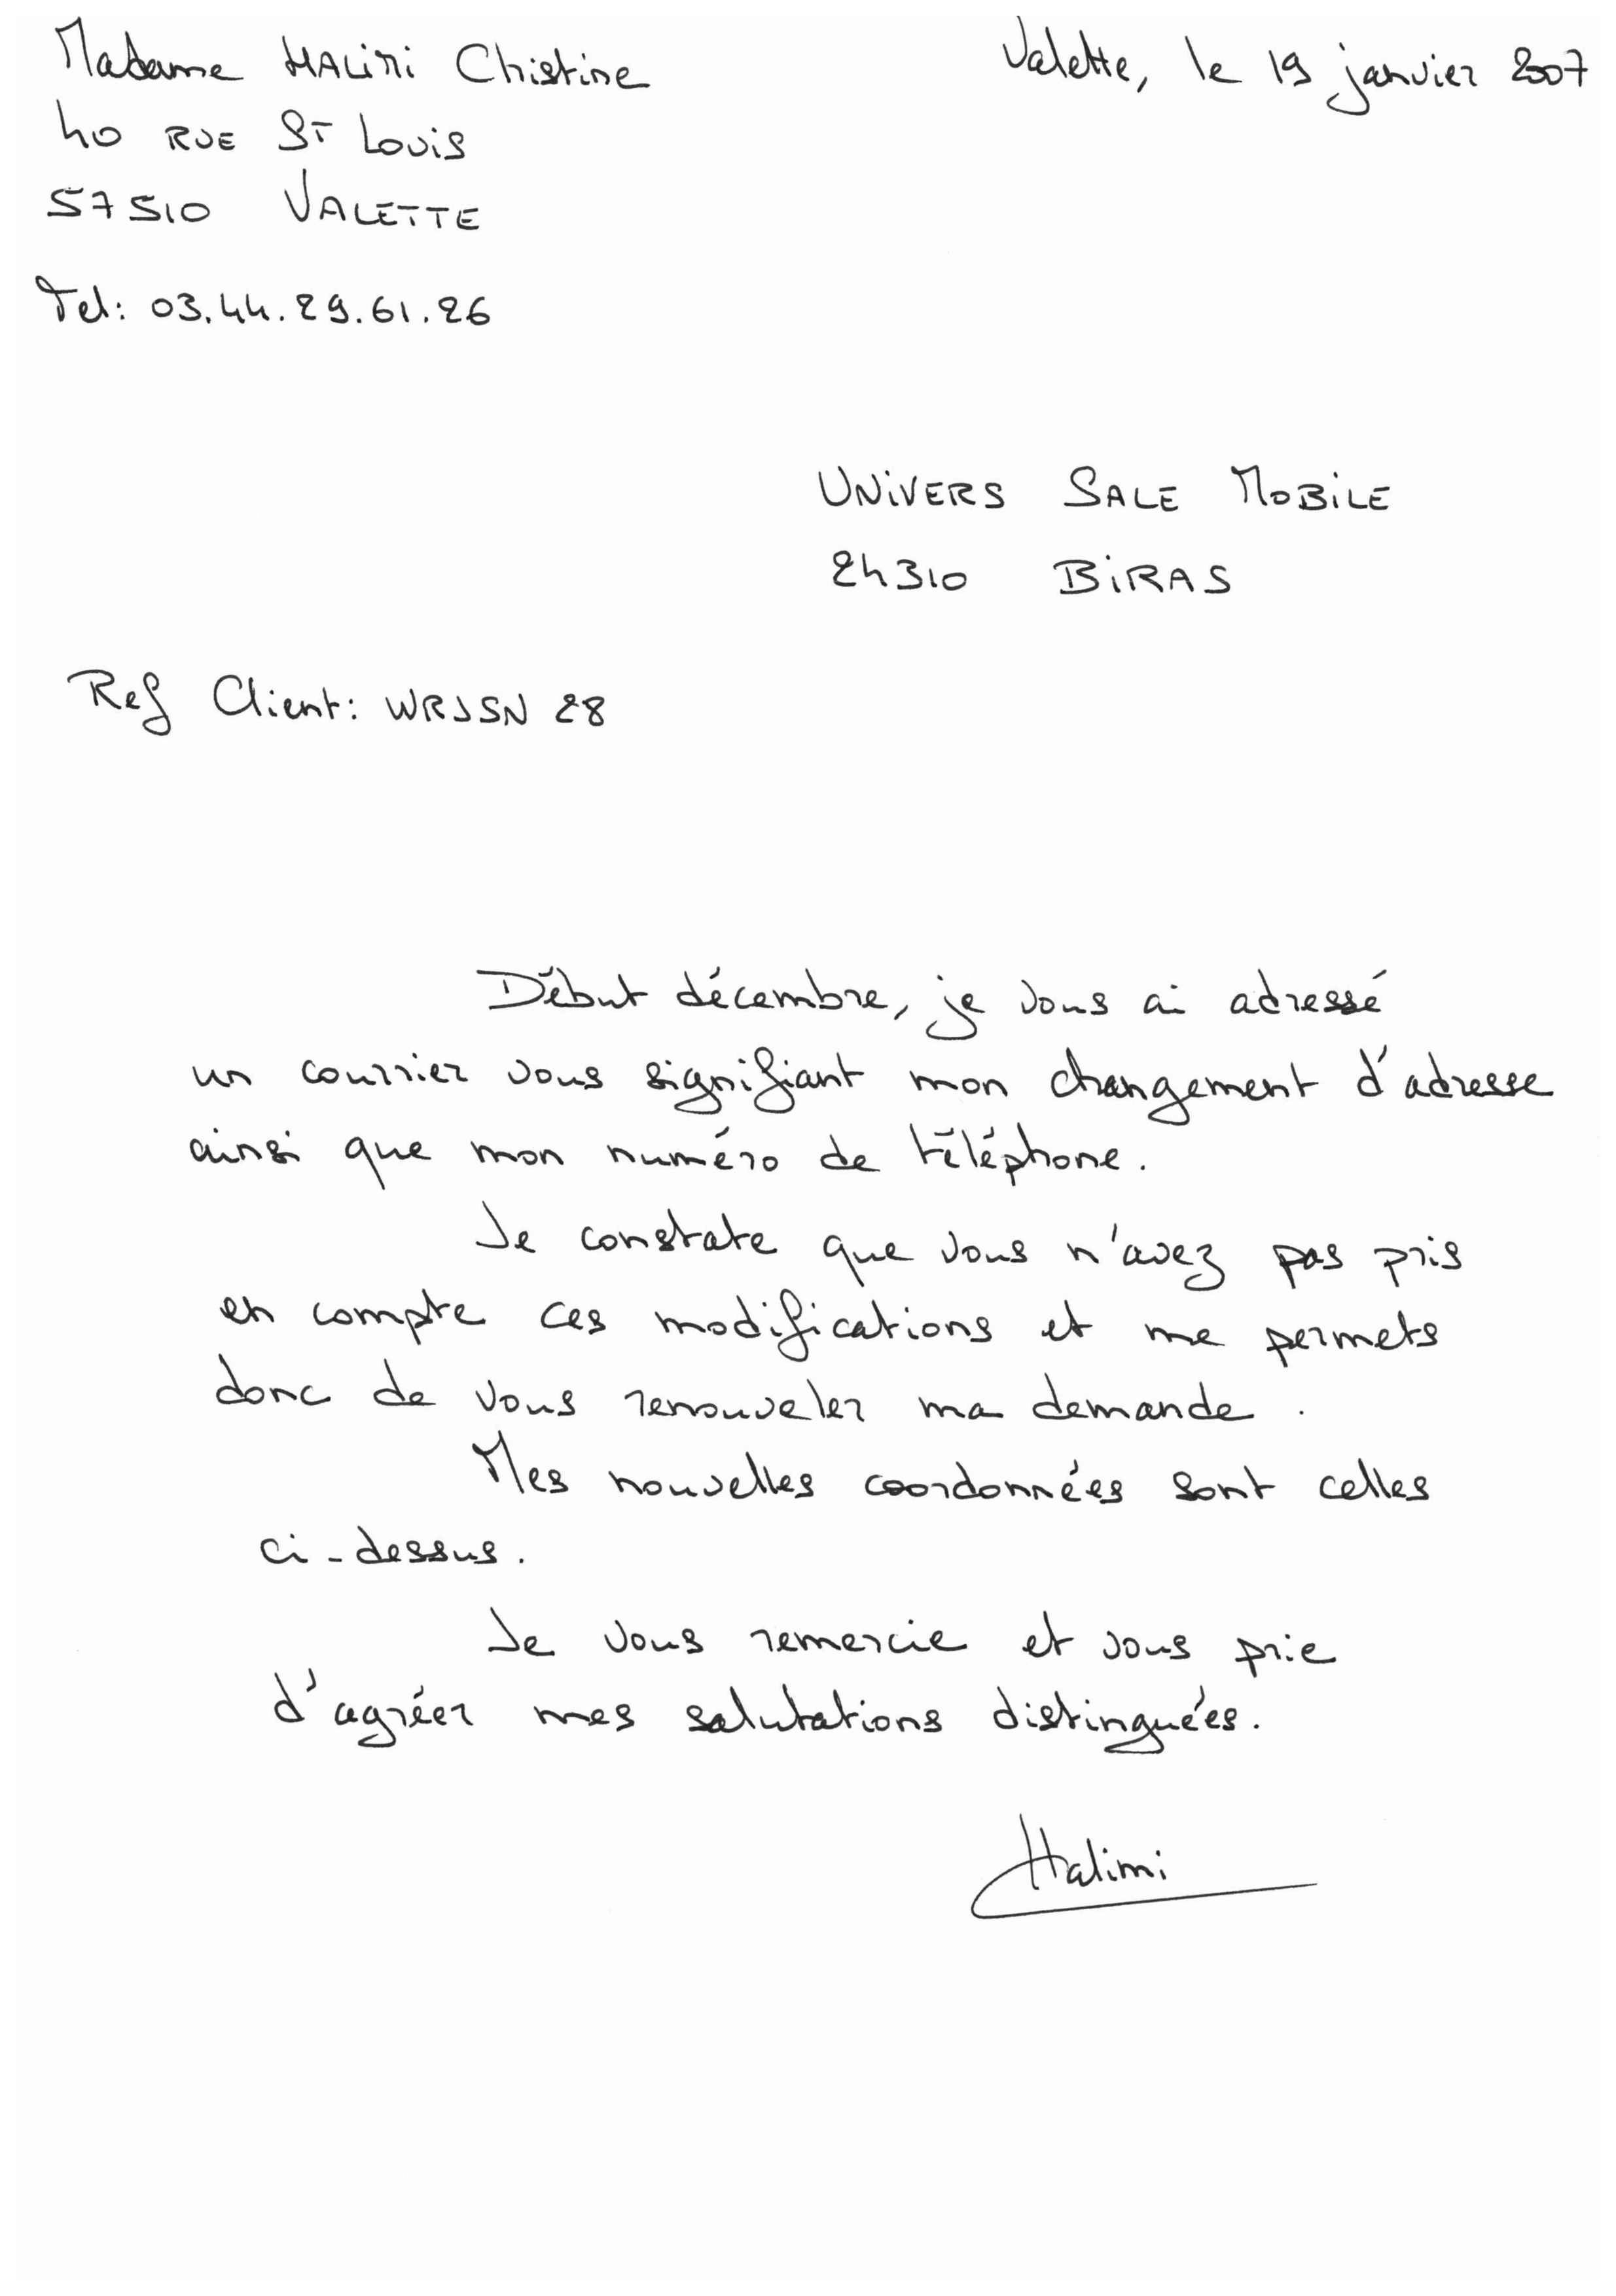 Madame HALIMI Christine
Valette, le 19 janvier 2007
40 RUE ST Louis
57510 VALETTE
Tel: 03.44.29.61.26
UNIVERS SALE MOBILE
24310 BIRAS
Ref Client: WRJSN 28
Début décembre, je vous ai adressé
un courrier vous signifiant mon changement d'adresse
ainsi que mon numéro de téléphone.
Je constate que vous n'avez pas pris
en compte ces modifications et me permets
donc de vous renouveler ma demande.
Mes nouvelles coordonnées sont celles
ci-dessus.
Je vous remercie et vous prie
d'agréer mes salutations distinguées.
Halimi